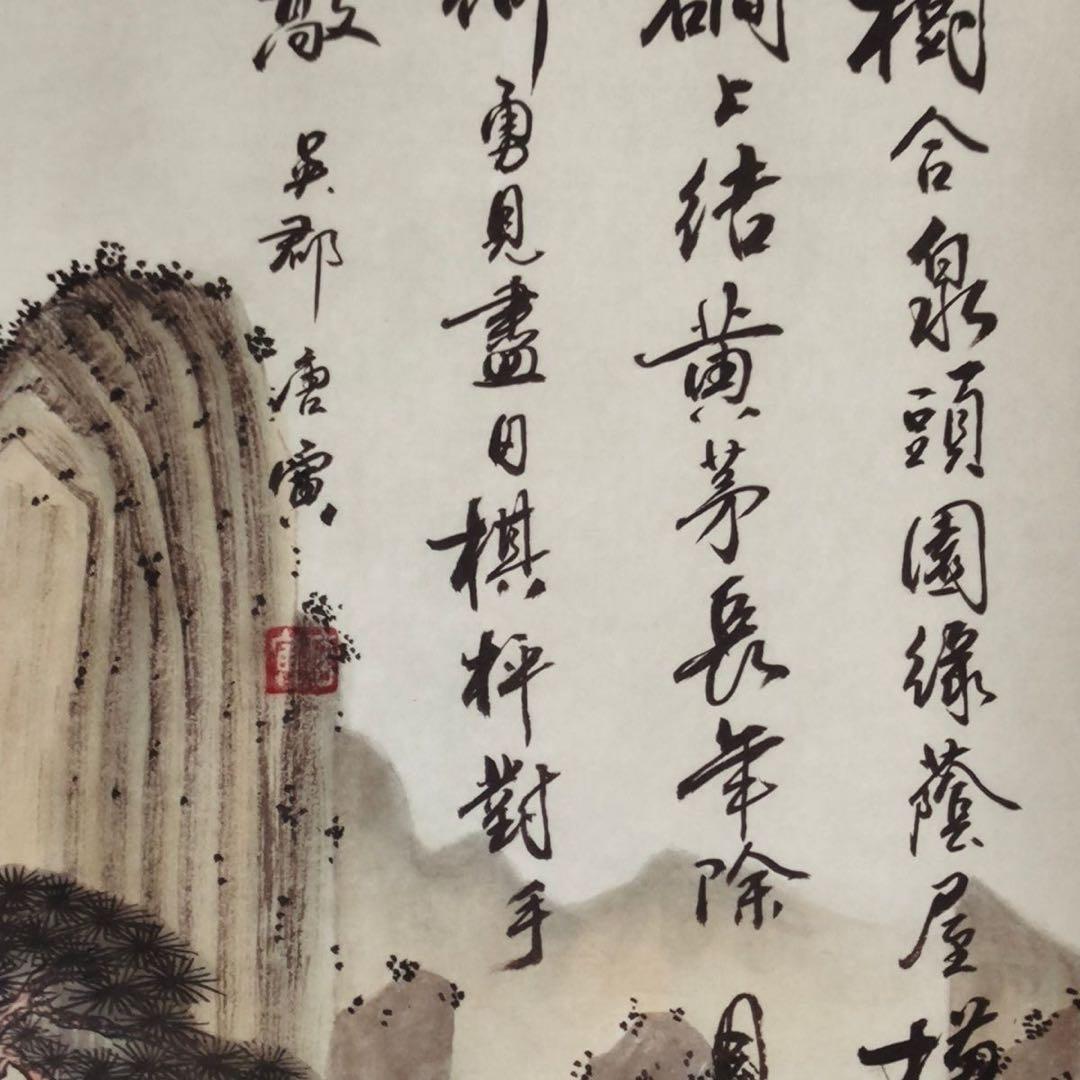 樹合泉頭圍綠蔭屋橫
磵上結黃茅長年除圍
勇見盡日棋枰對手
敲
吳郡唐寅